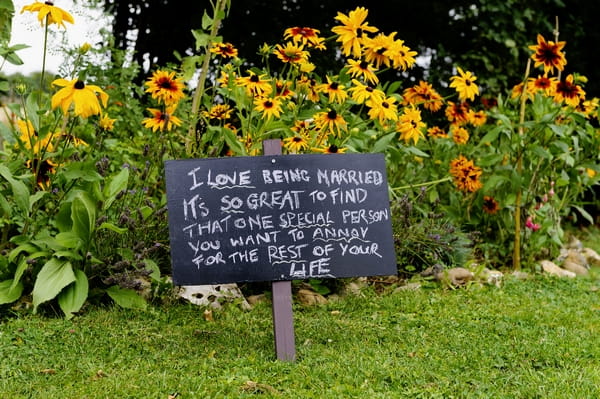 I LOVE BEING MARRIED
IT'S SO GREAT TO FIND
THAT ONE SPECIAL PERSON
YOU WANT TO ANNOY
FOR THE REST OF YOUR
LIFE